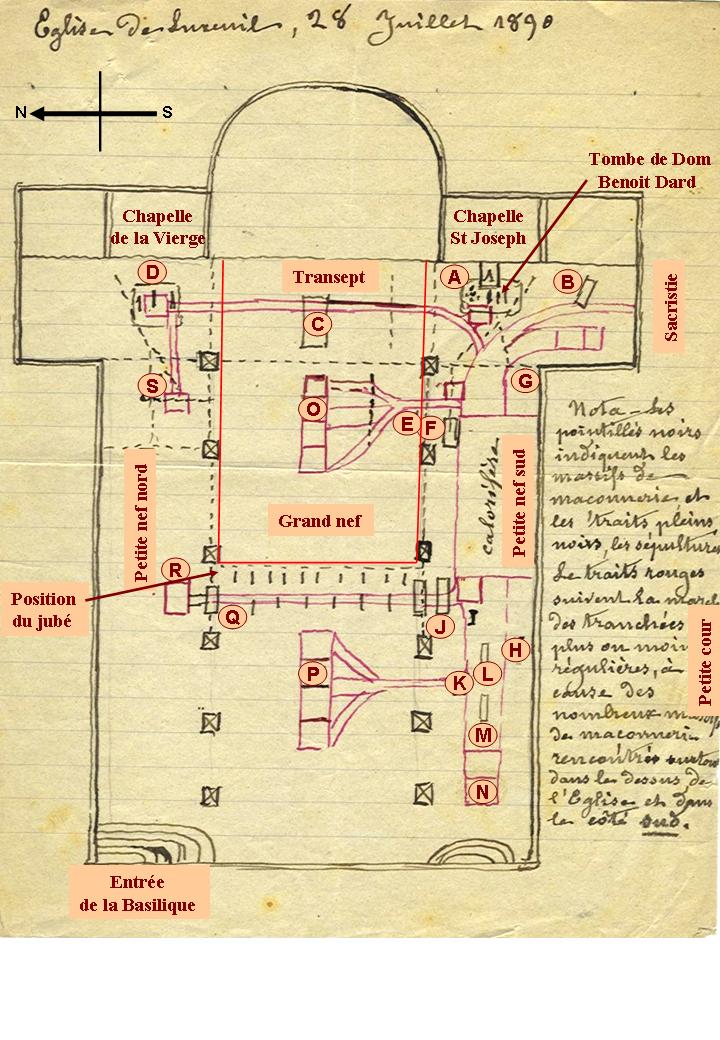 Eglise de Luxeuil, 28 Juillet 1890
N S
Tombe de Dom
Benoit Dard
Chapelle
de la Vierge
Chapelle
St Joseph
Transept
A
B
C
D
Sacristie
S
O
E
F
G
Nota – Les
pointillés noirs
indiquent les
massifs de
maçonnerie et
les traits pleins
noirs, les sépultures
Le traits rouges
suivent la march
des tranchées
plus ou moin
régulières, à
cause des
nombreux
de maçonnerie
rencontrés surtou
dans le dessus de
l'Eglise et dans
le côté sud.
Petite nef nord
Grand nef
calorifère
Petite nef sud
R
Position
du jubé
Q
J
I
H
Petite cour
P
K
L
M
N
Entrée
de la Basilique